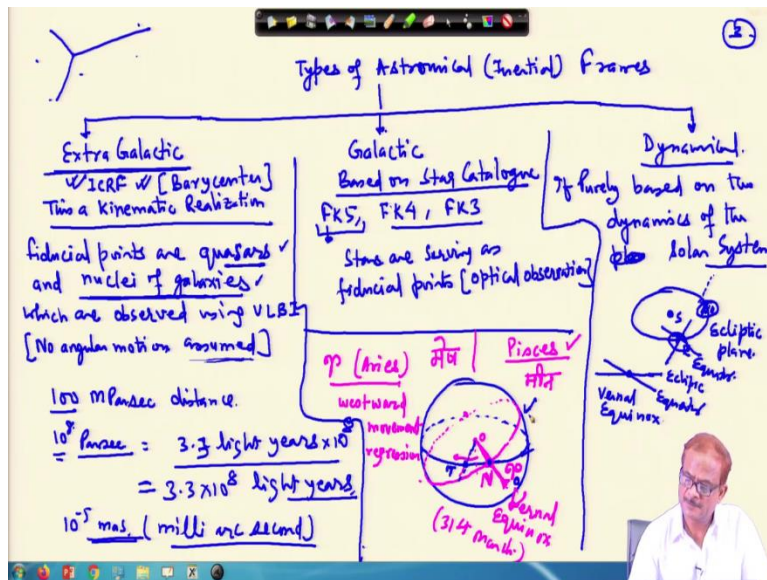 2
Types of Astromical (Inertial) Frames
Extra Galactic
ICRF [Barycenter]
This a Kinematic Realization
fiducial points are quasars
and nuclei of galaxies
which are observed using VLBI
[No angular motions assumed]
100 mParsec distance.
10^8 Parsec = 3.3 light years × 10^8
= 3.3×10^8 light years
10^-5 mas. (milli arc second)
Galactic
Based on Star Catalogue
FK5, FK4, FK3
Stars are serving as
fiducial points [optical observation]
♈ (Aries) मेष | Pisces
मीन
westward
movement
regression
O
T
N
♈
Vernal
Equinox
(31st March)
Dynamical.
If Purely based on the
dynamics of the
Solar System
S
E
Ecliptic
plane.
Equator.
Ecliptic
Equator
Vernal
Equinox